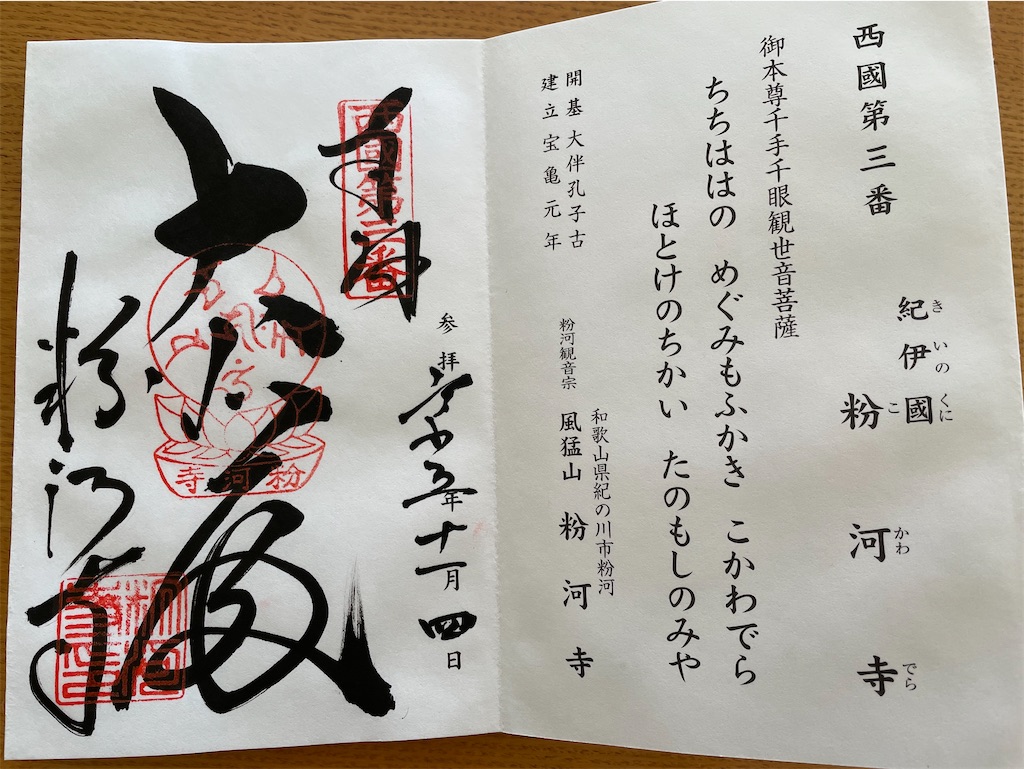 西國第三番
紀伊國
きいのくに
粉河寺
こかわでら
御本尊千手千眼観世音菩薩
ちちははの めぐみもふかき こかわでら
ほとけのちかい たのもしのみや
開基 大伴孔子古
建立 宝亀元年
和歌山県紀の川市粉河
粉河観音宗 風猛山 粉河寺
参拝 令和五年十一月四日
奉拝
西國第三番
粉河寺
粉河寺